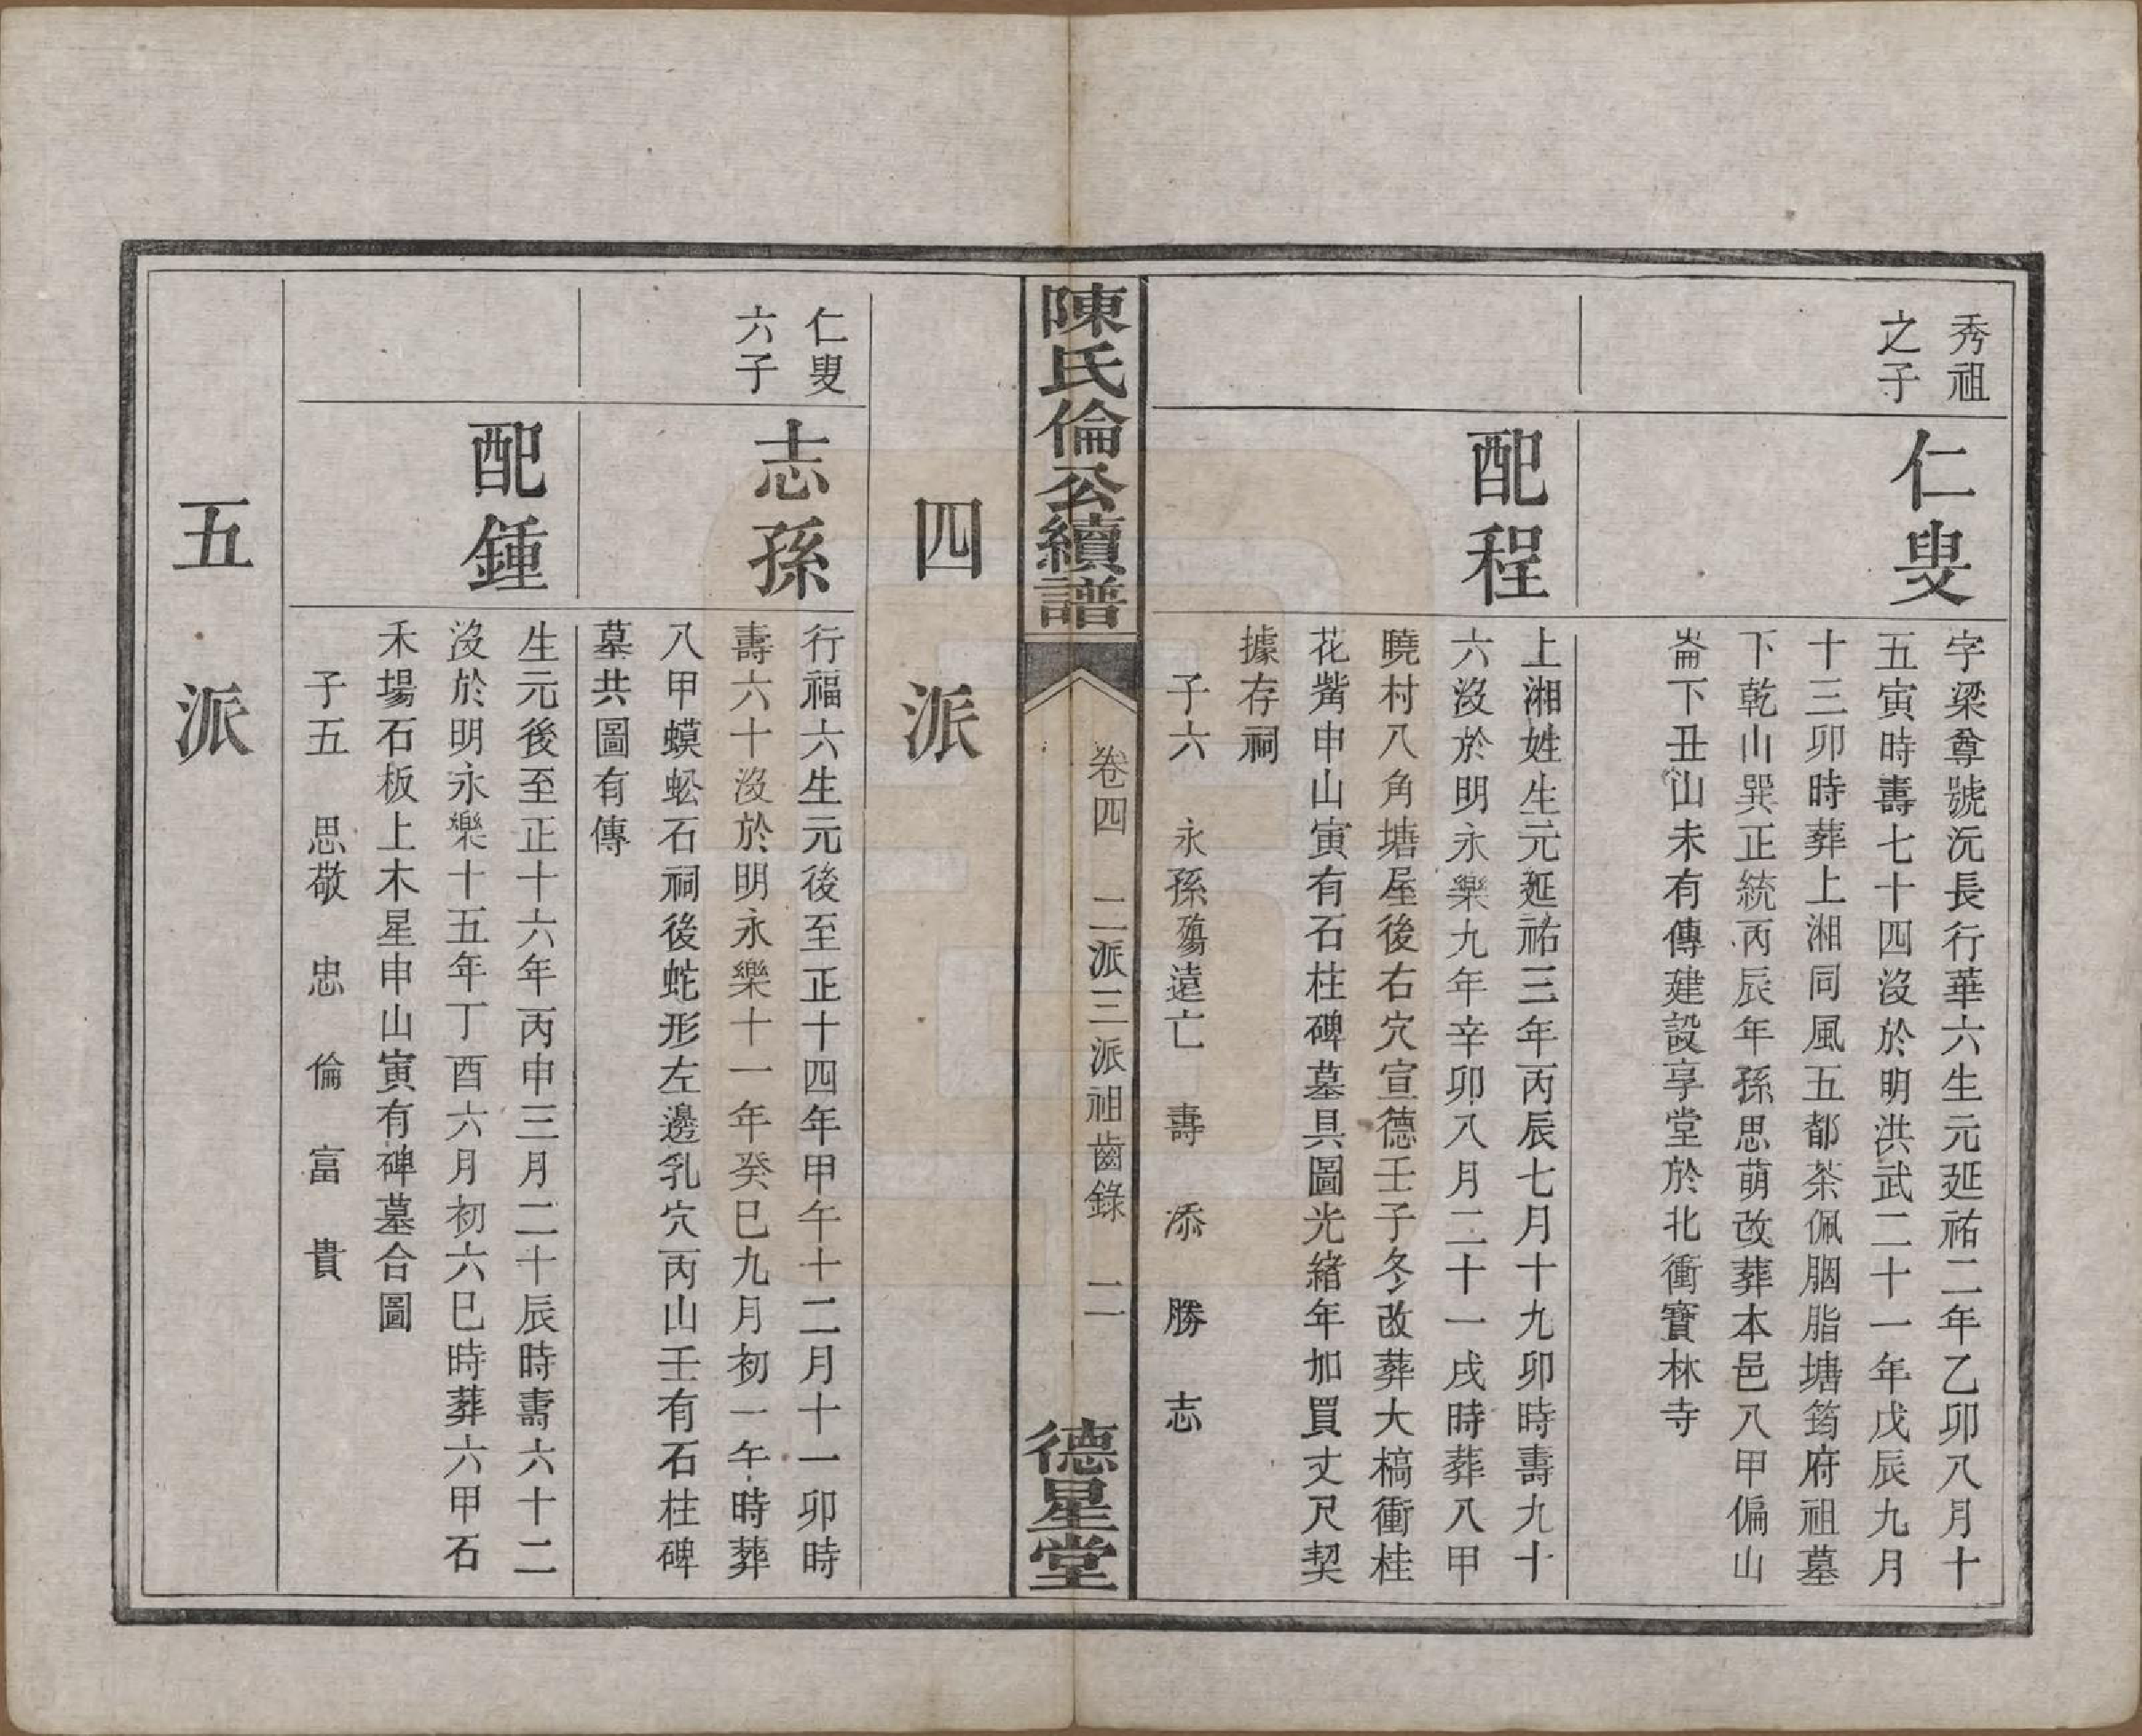 秀祖
之子
仁叟
字梁尊號沅長行華六生元延祐二年乙卯八月十
五寅時壽七十四沒於明洪武二十一年戊辰九月
十三卯時葬上湘同風五都茶佩胭脂塘筠府祖墓
下乾山巽正統丙辰年孫思萌改葬本邑八甲偏山
崙下丑山未有傳建設享堂於北衝寶林寺
配程
上湘姓生元延祐三年丙辰七月十九卯時壽九十
六沒於明永樂九年辛卯八月二十一戌時葬八甲
曉村八角塘屋後右穴宣德壬子冬改葬大槁衝桂
花觜申山寅有石柱碑墓具圖光緒年加買丈尺契
據存祠
子六 永孫殤遠亡 壽 添 勝 志
陳氏倫公續譜
卷四 二派三派祖齒錄 二
德星堂
四派
仁叟
六子
志孫
行福六生元後至正十四年甲午十二月十一卯時
壽六十沒於明永樂十一年癸巳九月初一午時葬
八甲蟆蚣石祠後蛇形左邊乳穴丙山壬有石柱碑
墓共圖有傳
配鍾
生元後至正十六年丙申三月二十辰時壽六十二
沒於明永樂十五年丁酉六月初六巳時葬六甲石
禾場石板上木星申山寅有碑墓合圖
子五 思敬 忠 倫 富 貴
五派